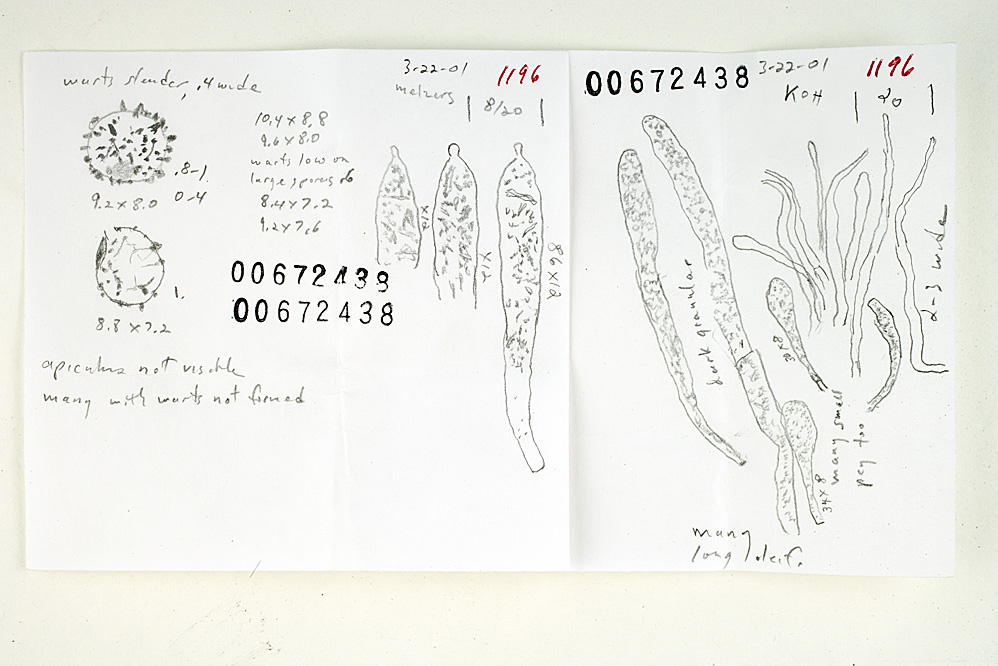 warts slender, .4 wide
3-22-01
1196
melzers
8/20
10.4 x 8.8
9.6 x 8.0
warts low on
large spores
8.4 x 7.2
9.2 x 7.6
.8-1.
9.2 x 8.0
0-4
1.
8.8 x 7.2
00672438
00672438
apiculus not visible
many with warts not formed
x12
x12
86x12
00672438
3-22-01
1196
KOH
20
dark granular
2-3 wide
34x8
many small
peg too
many
long